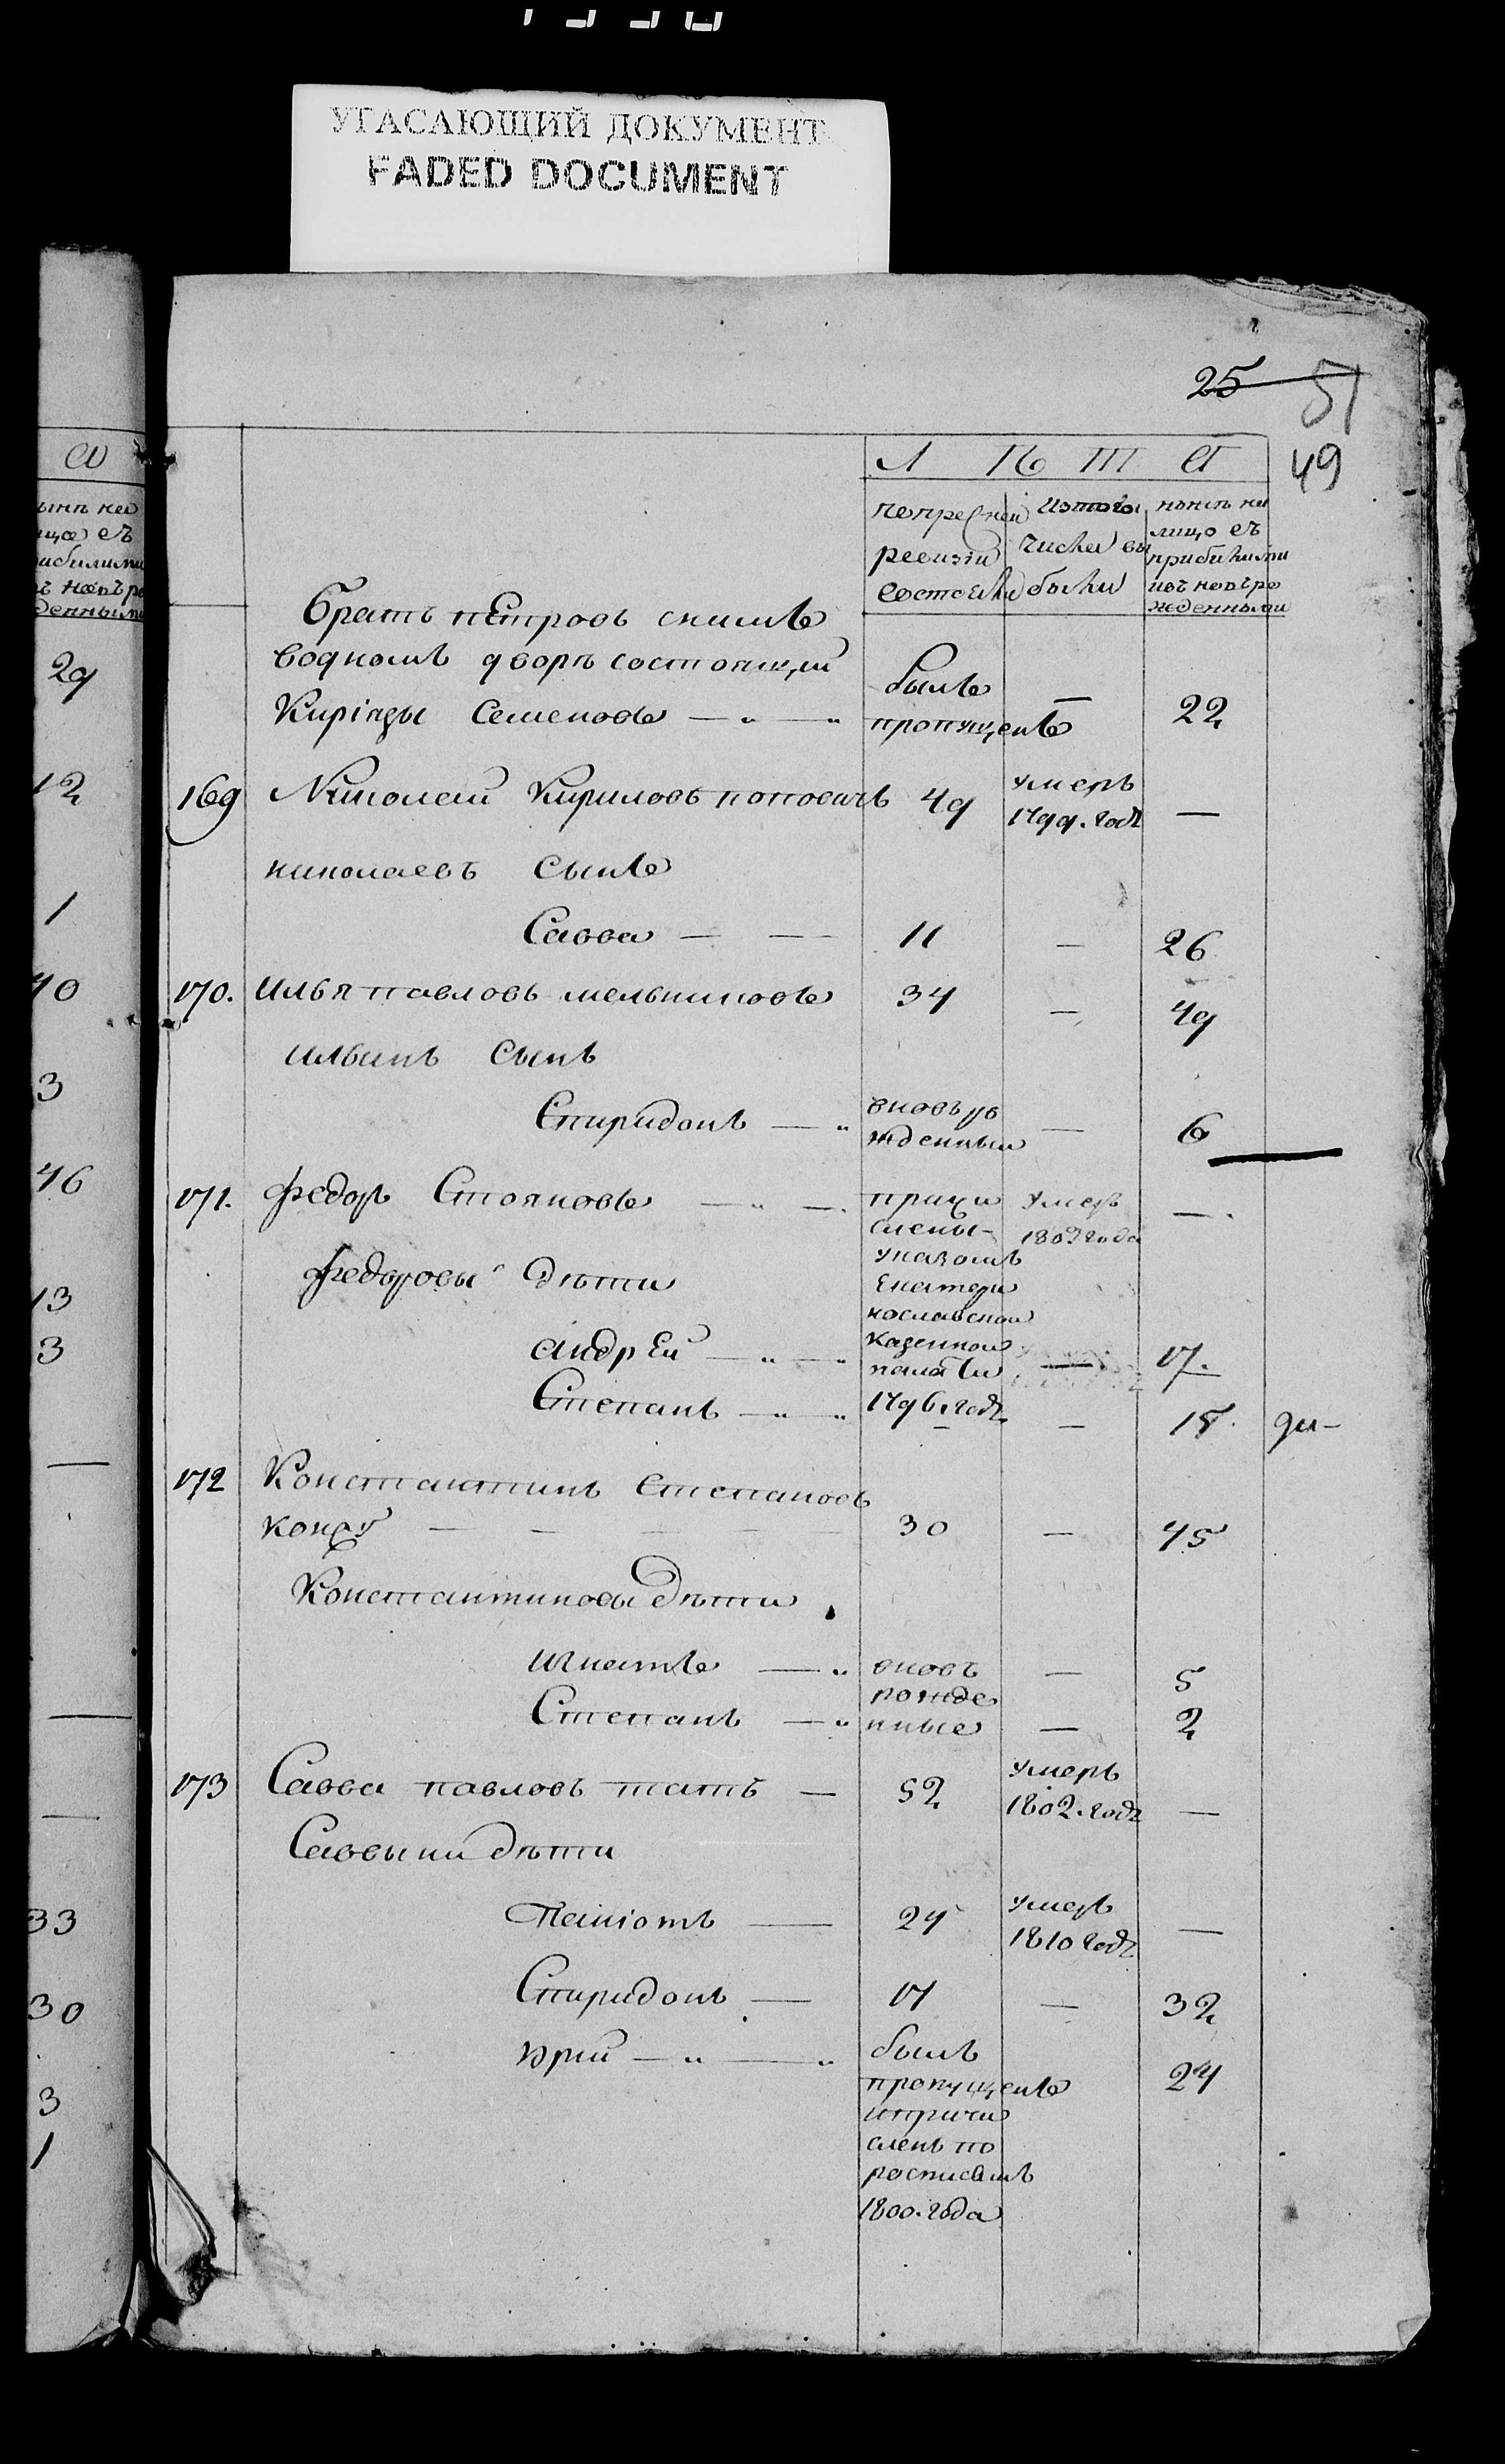 УГАСАЮЩИЙ ДОКУМЕНТ
FADED DOCUMENT
25 51
49
Л Ѣ Т А
попрежней ревизіи состояли
изтого числа выбыли
нынѣ на лицо съ прибылыми изъ новърожденными
братъ пЕтровъ снимъ
водномъ дворѣ состоящій
Киріязы Семеновъ — " — " былъ пропущенъ — 22
169 Николай Кириловъ поповичъ 49 умеръ 1799. годѣ —
николаевъ сынъ
Савва — — 11 — 26
170. илья павловъ мельниковъ 34 — 49
ильинъ сынъ
Спиридонъ — " вновь рожденный — 6
171. федоръ Стояновъ — " — . причислены указомъ Екатеринославской казенной палаты 1796. годѣ умеръ 1809 года — .
федоровы дѣти
андрЕй — " — " — 17.
Степанъ — " — " — 15. ди-
172 Константинъ Степановъ
— — — — — 30 — 45
Константиновы дѣти
игнатъ — " вновь рожденные — 5
Степанъ — " — 2
173 Савва павловъ татъ — 52 умеръ 1802. годѣ —
Саввыни дѣти
Панiотъ — 24 умеръ 1810 годѣ —
Спиридонъ — 17 — 32
юрій — " — " былъ пропущенъ ипричисленъ по росписямъ 1800. года 24
29
12
1
40
3
46
13
3
—
—
—
33
30
3
1